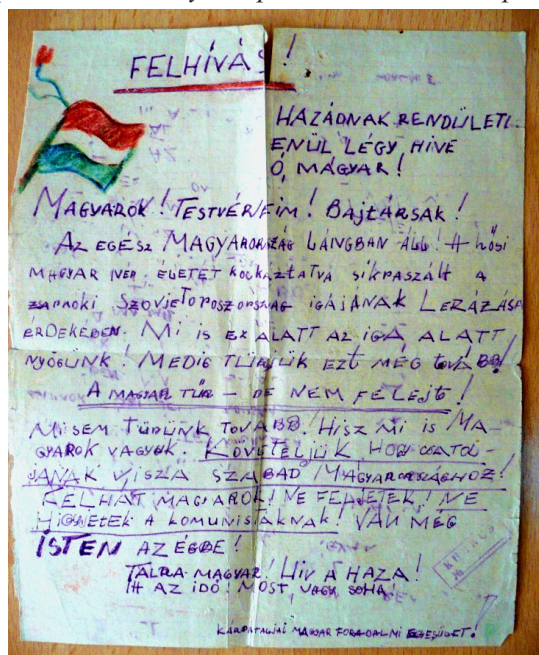 FELHÍVÁS!
HAZÁDNAK RENDÜLETL-
ENÜL LÉGY HIVE
Ó, MAGYAR!
MAGYAROK! TESTVÉREIM! BAJTÁRSAK!
AZ EGÉSZ MAGYARORSZÁG LÁNGBAN ÁLL! A HŐSI
MAGYAR NÉP ÉLETÉT KOCKÁZTATVA SIKRASZÁLT A
ZARNOKI SZOVJETOROSZORSZÁG IGÁJÁNAK LERÁZÁSA
ÉRDEKÉBEN. MI IS EZ ALATT AZ IGA ALATT
NYÖGÜNK! MEDIG TŰRJÜK EZT MÉG TOVÁBB!
A MAGYAR TŰR – DE NEM FELEJT!
MI SEM TŰRÜNK TOVÁBB! HISZ MI IS MA-
GYAROK VAGYUK. KÖVETELJÜK HOGY CSATOL-
JANAK VISZA SZABAD MAGYARORSZÁGHOZ!
FELHÁT MAGYAROK! NE FÉLJETEK! NE
HIGYJETEK A KOMUNISTÁKNAK! VAN MÉG
ISTEN AZ ÉGBE!
TALPRA MAGYAR! HIV A HAZA!
ITT AZ IDŐ! MOST, VAGY SOHA!
KÁRPÁTALJAI MAGYAR FORADALMI EGYESÜLET!